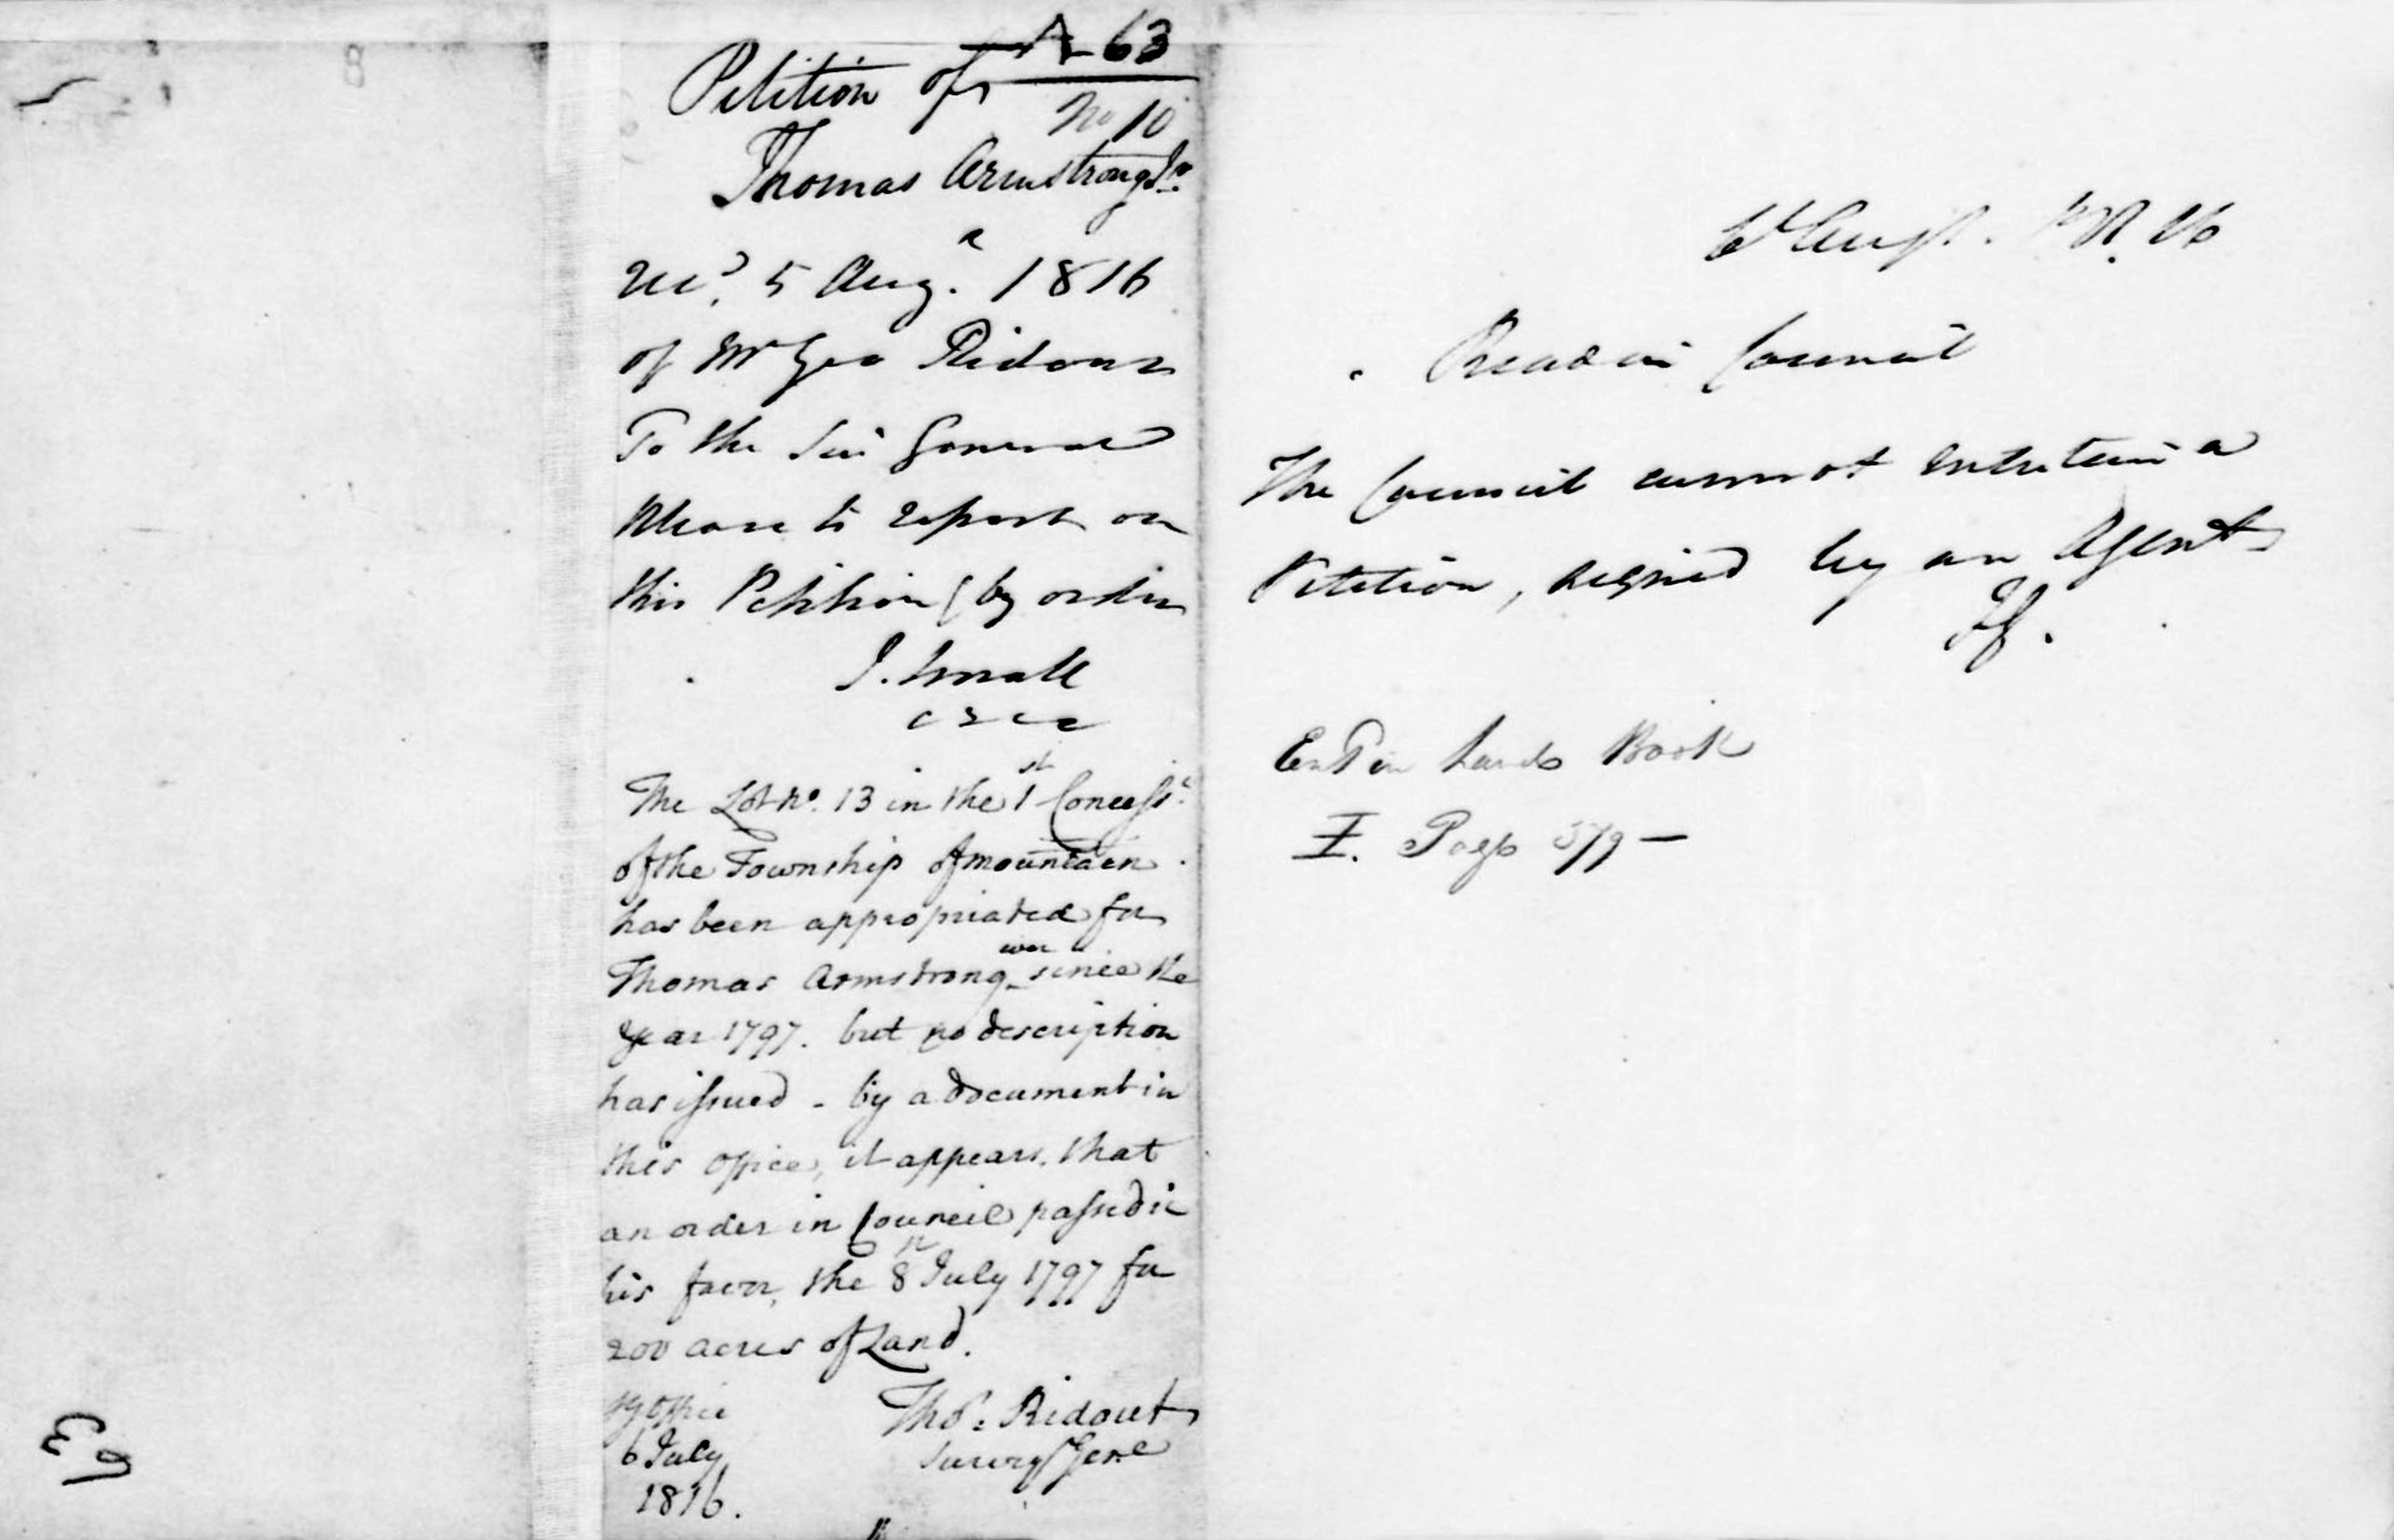 A 63
Petition of
No 10
Thomas Armstrong Jr.
Rec.d 5 Aug. 1816
of Mr Geo Ridout
To the Sur General
Please to report on
this Petition (by order
J. Small
The Lot No. 13 in the 1st Concess.n
of the Township of mountain
has been appropriated for
Thomas Armstrong ever since the
Year 1797. but no description
has issued - by a document in
this office, it appears, that
an order in Council passed in
his favor, the 8th July 1797 for
200 acres of Land.
SG Office
6 July
1816.
Thos. Ridout
Survey Genl
Read in Council
The Council cannot entertain a
Petition, signed by an Agent
Ent in Land Book
I. Page 579 —
63